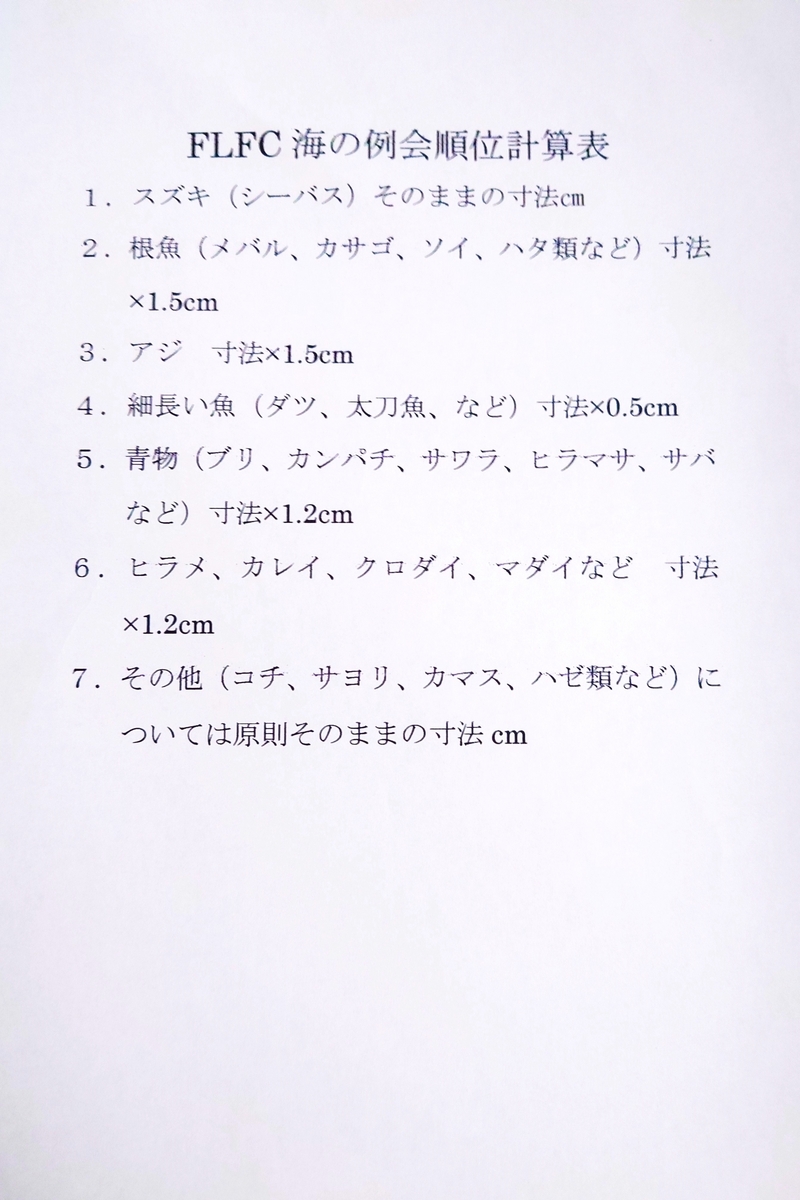 FLFC 海の例会順位計算表
１．スズキ（シーバス）そのままの寸法㎝
２．根魚（メバル、カサゴ、ソイ、ハタ類など）寸法
×1.5cm
３．アジ　寸法×1.5cm
４．細長い魚（ダツ、太刀魚、など）寸法×0.5cm
５．青物（ブリ、カンパチ、サワラ、ヒラマサ、サバ
など）寸法×1.2cm
６．ヒラメ、カレイ、クロダイ、マダイなど　寸法
×1.2cm
７．その他（コチ、サヨリ、カマス、ハゼ類など）に
ついては原則そのままの寸法 cm